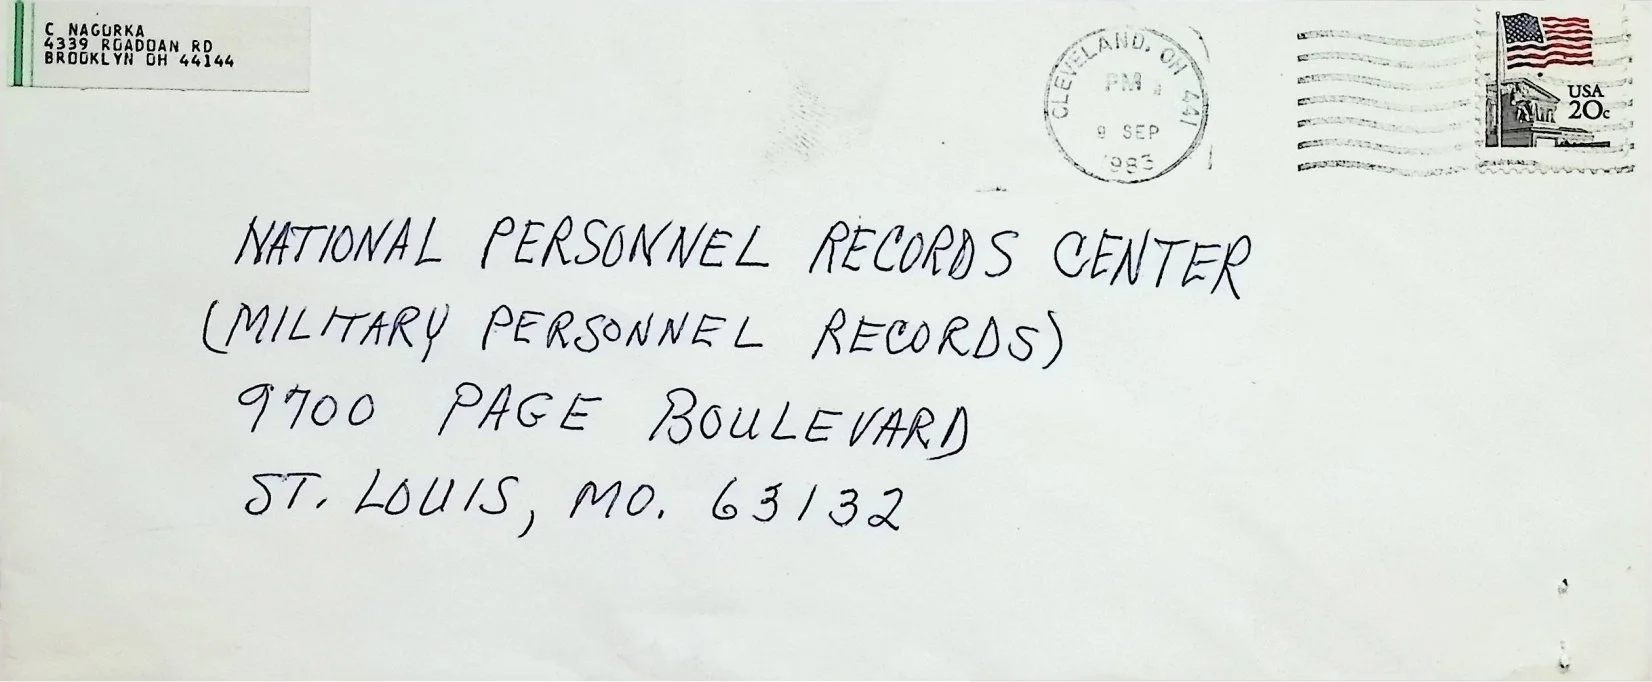 C NAGORKA
4339 ROADOAN RD
BROOKLYN OH 44144
CLEVELAND, OH 441
PM
9 SEP
1983
USA
20c
NATIONAL PERSONNEL RECORDS CENTER
(MILITARY PERSONNEL RECORDS)
9700 PAGE BOULEVARD
ST. LOUIS, MO. 63132